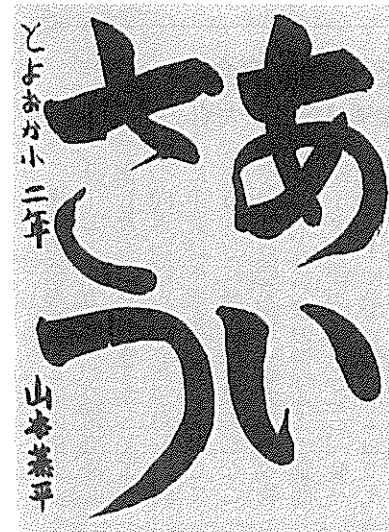 あい
さつ
とよおか小 二年 山本